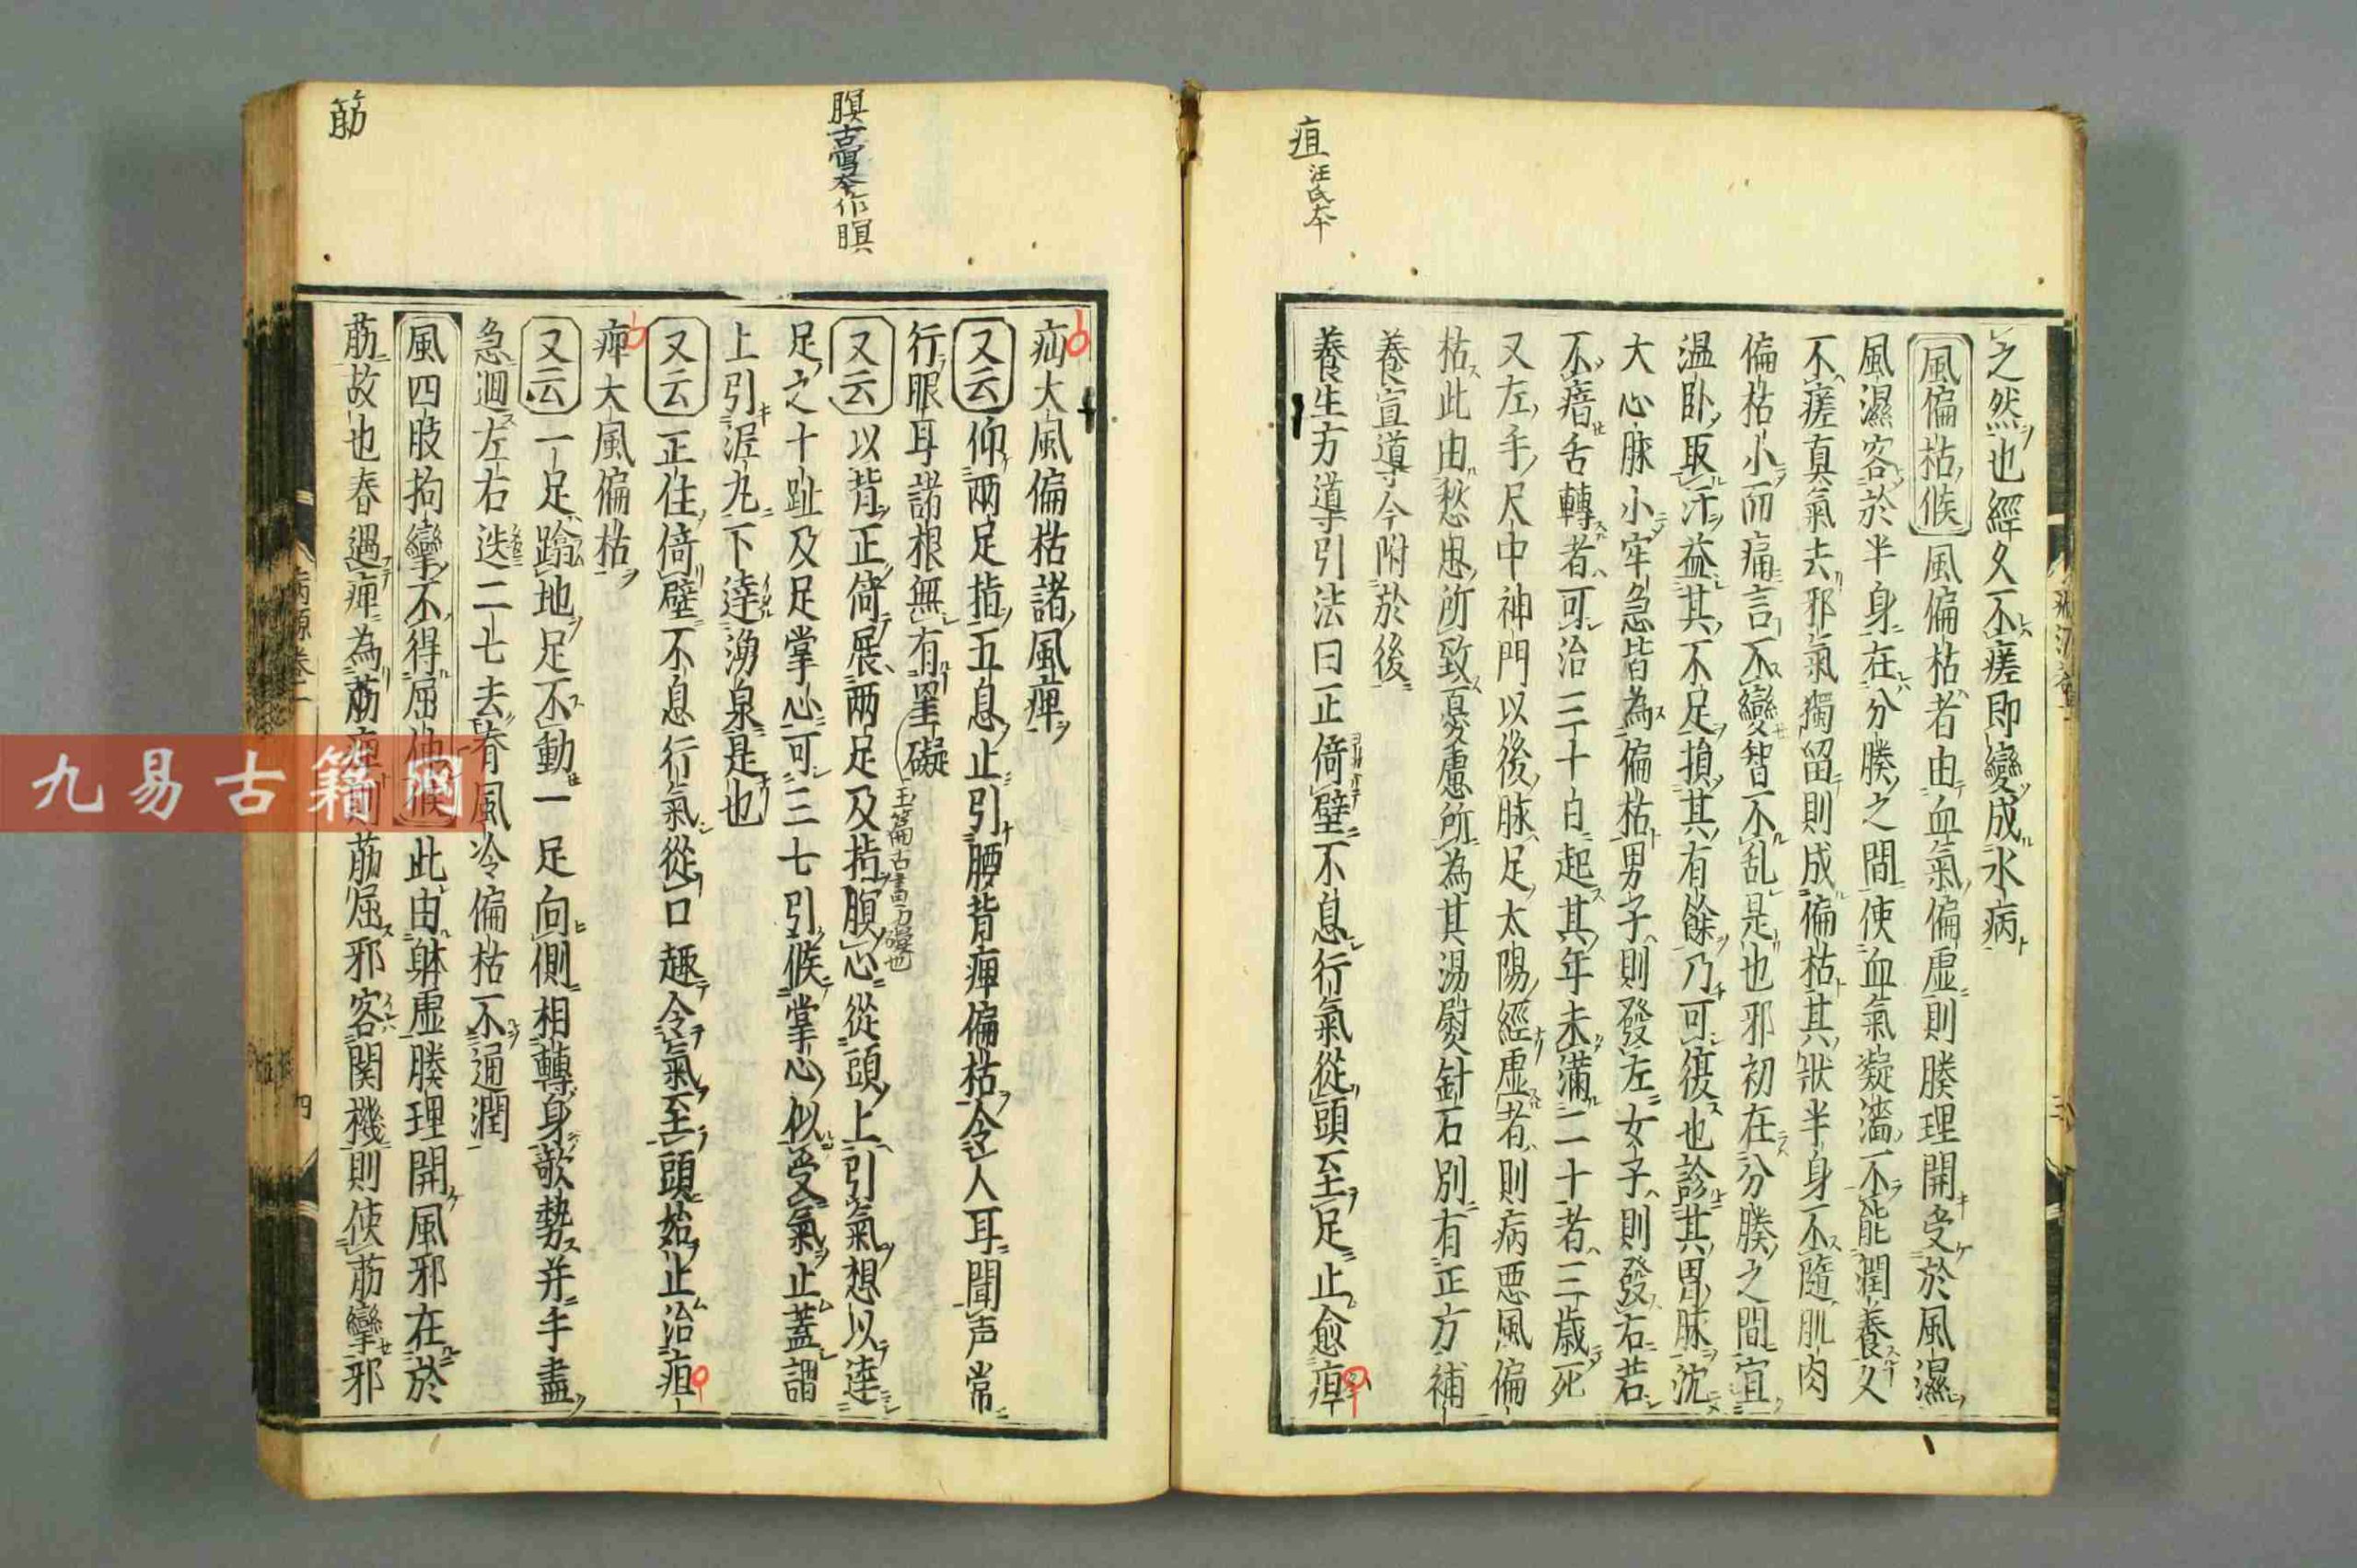 疽汪氏本
之然也經久不瘥即變成水病
風偏枯候 風偏枯者由血氣偏虛則腠理開受於風濕
風濕客於半身在分腠之間使血氣凝濇不能潤養久
不瘥真氣去邪氣獨留則成偏枯其狀半身不隨肌肉
偏枯小而痛言不變智不乱是也邪初在分腠之間宜
温卧取汗益其不足損其有餘乃可復也診其胃脉沈
大心脉小牢急皆為偏枯男子則發左女子則發右若
不瘖舌轉者可治三十日起其年未滿二十者三歳死
又左手尺中神門以後脉足太陽經虛者則病悪風偏
枯此由愁思所致憂慮所為其湯熨針石別有正方補
養宣導今附於後
養生方導引法曰正倚壁不息行氣從頭至足止愈疽
䐜古寫本作瞑
筋
疝大風偏枯諸風痺
又云 仰兩足指五息止引腰背痺偏枯令人耳聞声常
行眼耳諸根無有罣礙
玉篇古書
又云 以背正倚展兩足及指䐜心從頭上引氣想以逹
足之十趾及足掌心可三七引候掌心似受氣止蓋謂
上引泥丸下逹湧泉是也
又云 正住倚壁不息行氣從口趣令氣至頭始止治疽
痺大風偏枯
又云 一足蹹地足不動一足向側相轉身欹勢并手盡
急迴左右迭二七去脊風冷偏枯不通潤
風四肢拘攣不得屈伸候 此由躰虛腠理開風邪在於
筋故也春遇痺為筋痺則筋屈邪客関機則使筋攣邪
病源卷二
四
九易古籍网